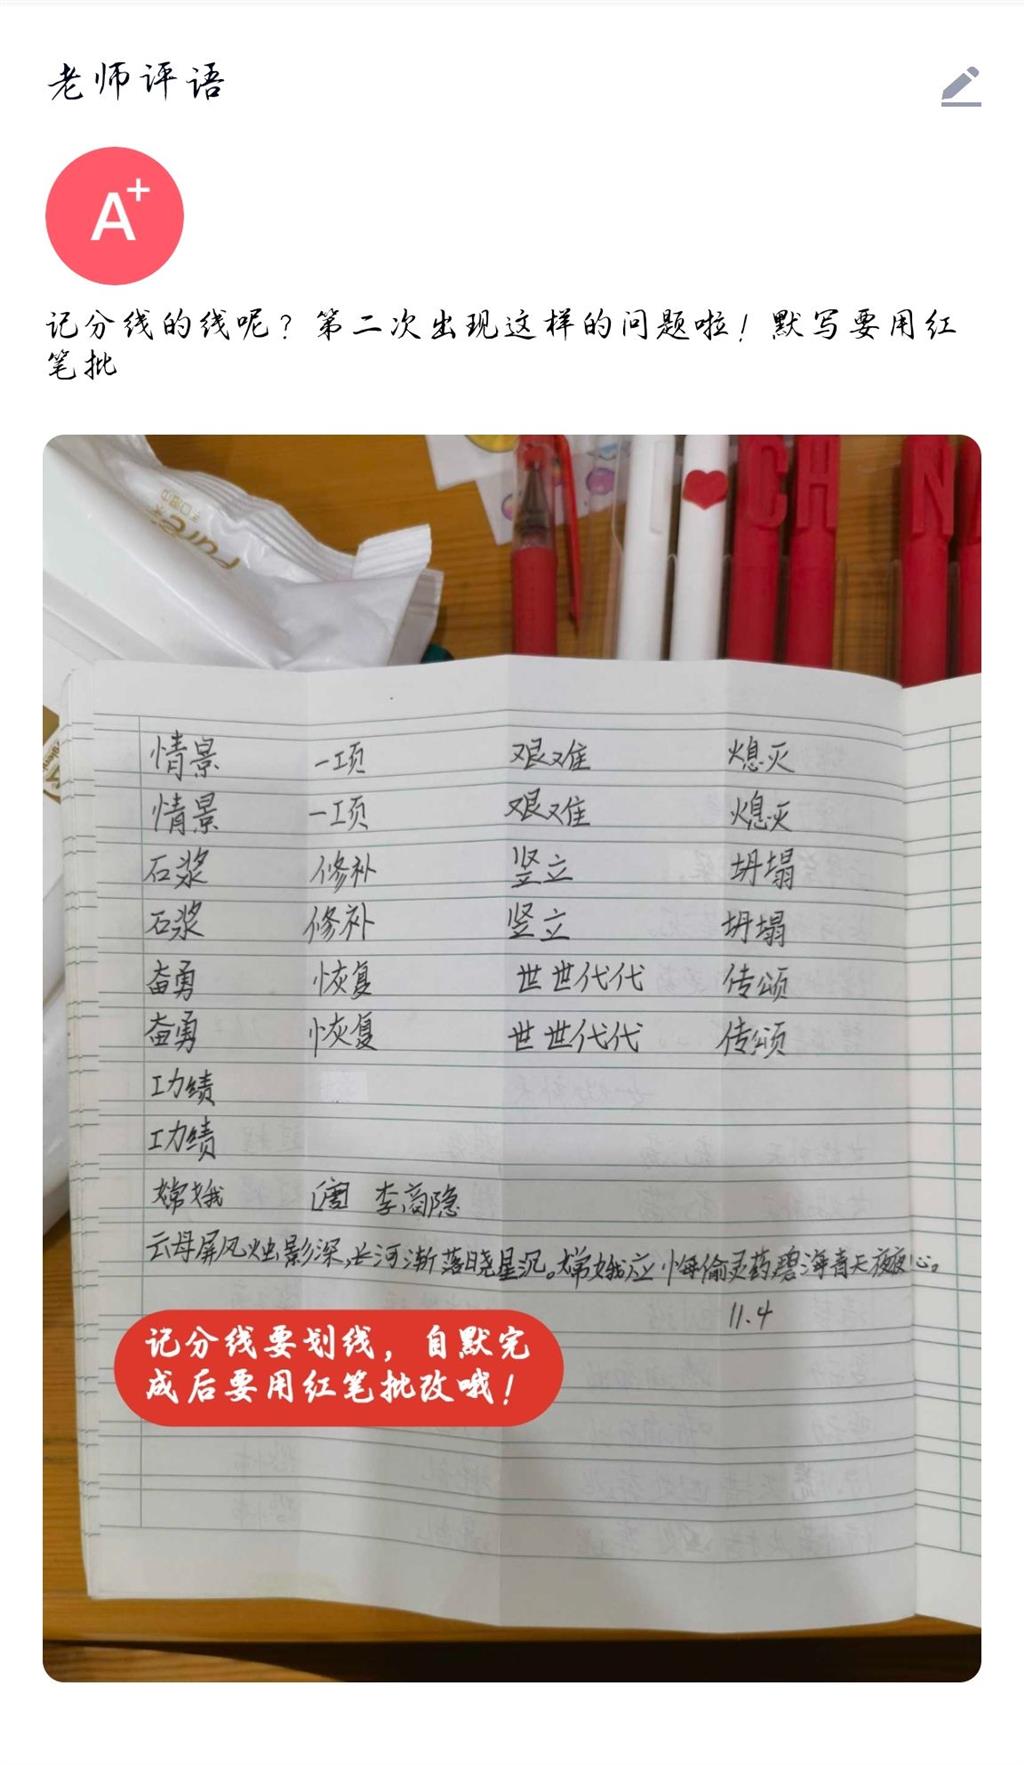 老师评语
A+
记分线的线呢？第二次出现这样的问题啦！默写要用红
笔批
CH N
情景 一项 艰难 熄灭
情景 一项 艰难 熄灭
石浆 修补 竖立 坍塌
石浆 修补 竖立 坍塌
奋勇 恢复 世世代代 传颂
奋勇 恢复 世世代代 传颂
工力绩
工力绩
嫦娥 [唐] 李商隐
云母屏风烛影深,长河渐落晓星沉。嫦娥应悔偷灵药碧海青天夜夜心。
11.4
记分线要划线，自默完
成后要用红笔批改哦！